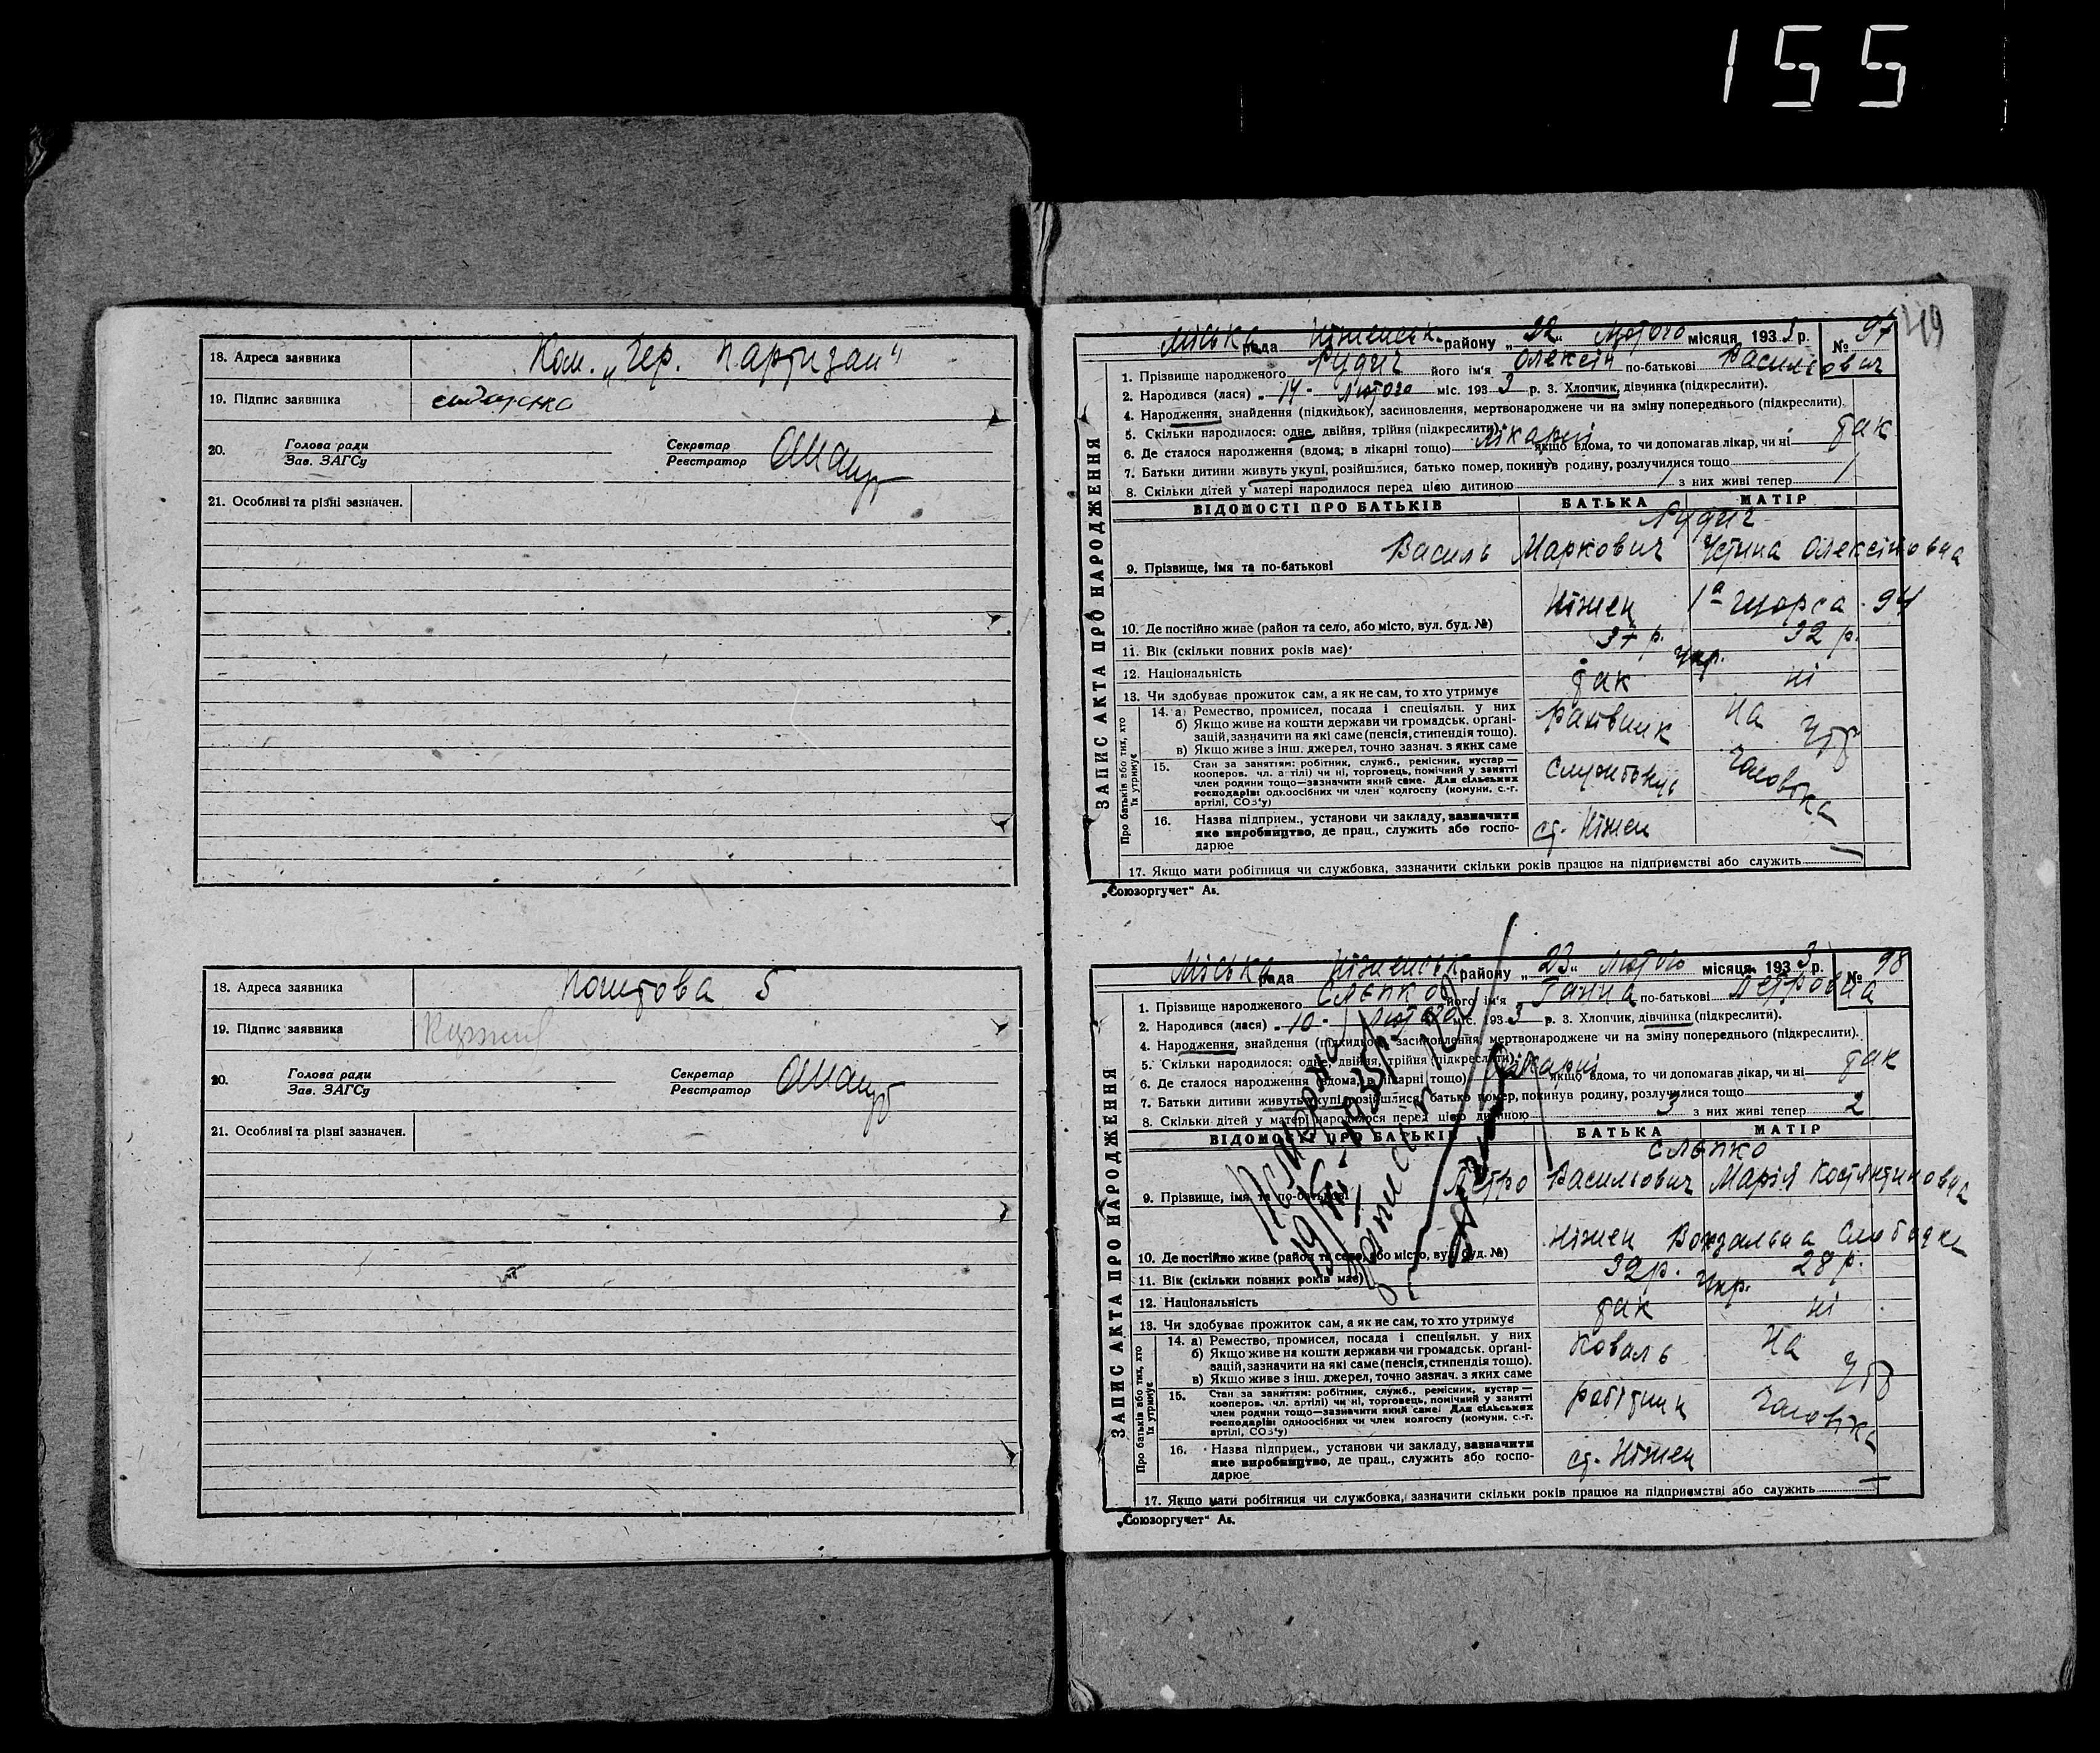 155
18. Адреса заявника Ком. „Чер. Партизан"
19. Підпис заявника
20. Голова ради Секретар
Зав. ЗАГСу Реєстратор
21. Особливі та різні зазначен.
18. Адреса заявника Поштова 5
19. Підпис заявника
20. Голова ради Секретар
Зав. ЗАГСу Реєстратор
21. Особливі та різні зазначен.
ЗАПИС АКТА ПРО НАРОДЖЕННЯ
Міська рада Ніженськ. району „22" Лютого місяця 1933 р. № 97
1. Прізвище народженого Рудич його ім'я Олексій по-батькові Васильович
2. Народився (лася) „14" Лютого міс. 1933 р. 3. Хлопчик, дівчинка (підкреслити).
4. Народження, знайдення (підкидьок), засиновлення, мертвонароджене чи на зміну попереднього (підкреслити).
5. Скільки народилося: одне, двійня, трійня (підкреслити).
6. Де сталося народження (вдома, в лікарні тощо) лікарні якщо вдома, то чи допомагав лікар, чи ні так
7. Батьки дитини живуть укупі, розійшлися, батько помер, покинув родину, розлучилися тощо
8. Скільки дітей у матері народилося перед цією дитиною 1 з них живі тепер 1
ВІДОМОСТІ ПРО БАТЬКІВ БАТЬКА МАТІР
Рудич
9. Прізвище, імя та по-батькові Василь Маркович Устина Олексіївовна
10. Де постійно живе (район та село, або місто, вул. буд. №) Ніжен 1а Щорса 94
11. Вік (скільки повних років має) 37 р. 32 р.
12. Національність Укр.
13. Чи здобуває прожиток сам, а як не сам, то хто утримує так ні
Про батьків або тих, хто їх утримує
14. а) Ремество, промисел, посада і спеціяльн. у них На утр
б) Якщо живе на кошти держави чи громадськ. органі-
зацій, зазначити на які саме (пенсія, стипендія тощо).
в) Якщо живе з інш. джерел, точно зазнач. з яких саме
15. Стан за заняттям: робітник, служб., ремісник, кустар—
кооперов. чл. артілі) чи ні, торговець, помічний у занятті
член родини тощо—зазначити який саме. Для сільських
господарів: одноосібних чи член колгоспу (комуни, с.-г.
артілі, СОЗ'у) Службовець чоловіка
16. Назва підприєм., установи чи закладу, зазначити
яке виробництво, де прац., служить або госпо-
дарює ст. Ніжен
17. Якщо мати робітниця чи службовка, зазначити скільки років працює на підприємстві або служить —
„Союзоргучет" Ав.
ЗАПИС АКТА ПРО НАРОДЖЕННЯ
Міська рада Ніженськ району „23" Лютого місяця 1933 р. № 98
1. Прізвище народженого Слєпко його ім'я Ганна по-батькові Петровна
2. Народився (лася) „10" Лютого міс. 1933 р. 3. Хлопчик, дівчинка (підкреслити).
4. Народження, знайдення (підкидьок), засиновлення, мертвонароджене чи на зміну попереднього (підкреслити).
5. Скільки народилося: одне, двійня, трійня (підкреслити)
6. Де сталося народження (вдома, в лікарні тощо) лікарні якщо вдома, то чи допомагав лікар, чи ні так
7. Батьки дитини живуть укупі, розійшлися, батько помер, покинув родину, розлучилися тощо
8. Скільки дітей у матері народилося перед цією дитиною 3 з них живі тепер 2
ВІДОМОСТІ ПРО БАТЬКІВ БАТЬКА МАТІР
Слєпко
9. Прізвище, імя та по-батькові Петро Васильович Марія Костянтиновна
10. Де постійно живе (район та село, або місто, вул. буд. №) Ніжен Вокзальна Слободка
11. Вік (скільки повних років має) 32 р. 28 р.
12. Національність Укр.
13. Чи здобуває прожиток сам, а як не сам, то хто утримує так ні
Про батьків або тих, хто їх утримує
14. а) Ремество, промисел, посада і спеціяльн. у них Коваль На утр
б) Якщо живе на кошти держави чи громадськ. органі-
зацій, зазначити на які саме (пенсія, стипендія тощо).
в) Якщо живе з інш. джерел, точно зазнач. з яких саме
15. Стан за заняттям: робітник, служб., ремісник, кустар—
кооперов. чл. артілі) чи ні, торговець, помічний у занятті
член родини тощо—зазначити який саме. Для сільських
господарів: одноосібних чи член колгоспу (комуни, с.-г.
артілі, СОЗ'у) робітник чоловіка
16. Назва підприєм., установи чи закладу, зазначити
яке виробництво, де прац., служить або госпо-
дарює ст. Ніжен
17. Якщо мати робітниця чи службовка, зазначити скільки років працює на підприємстві або служить —
„Союзоргучет" Ав.